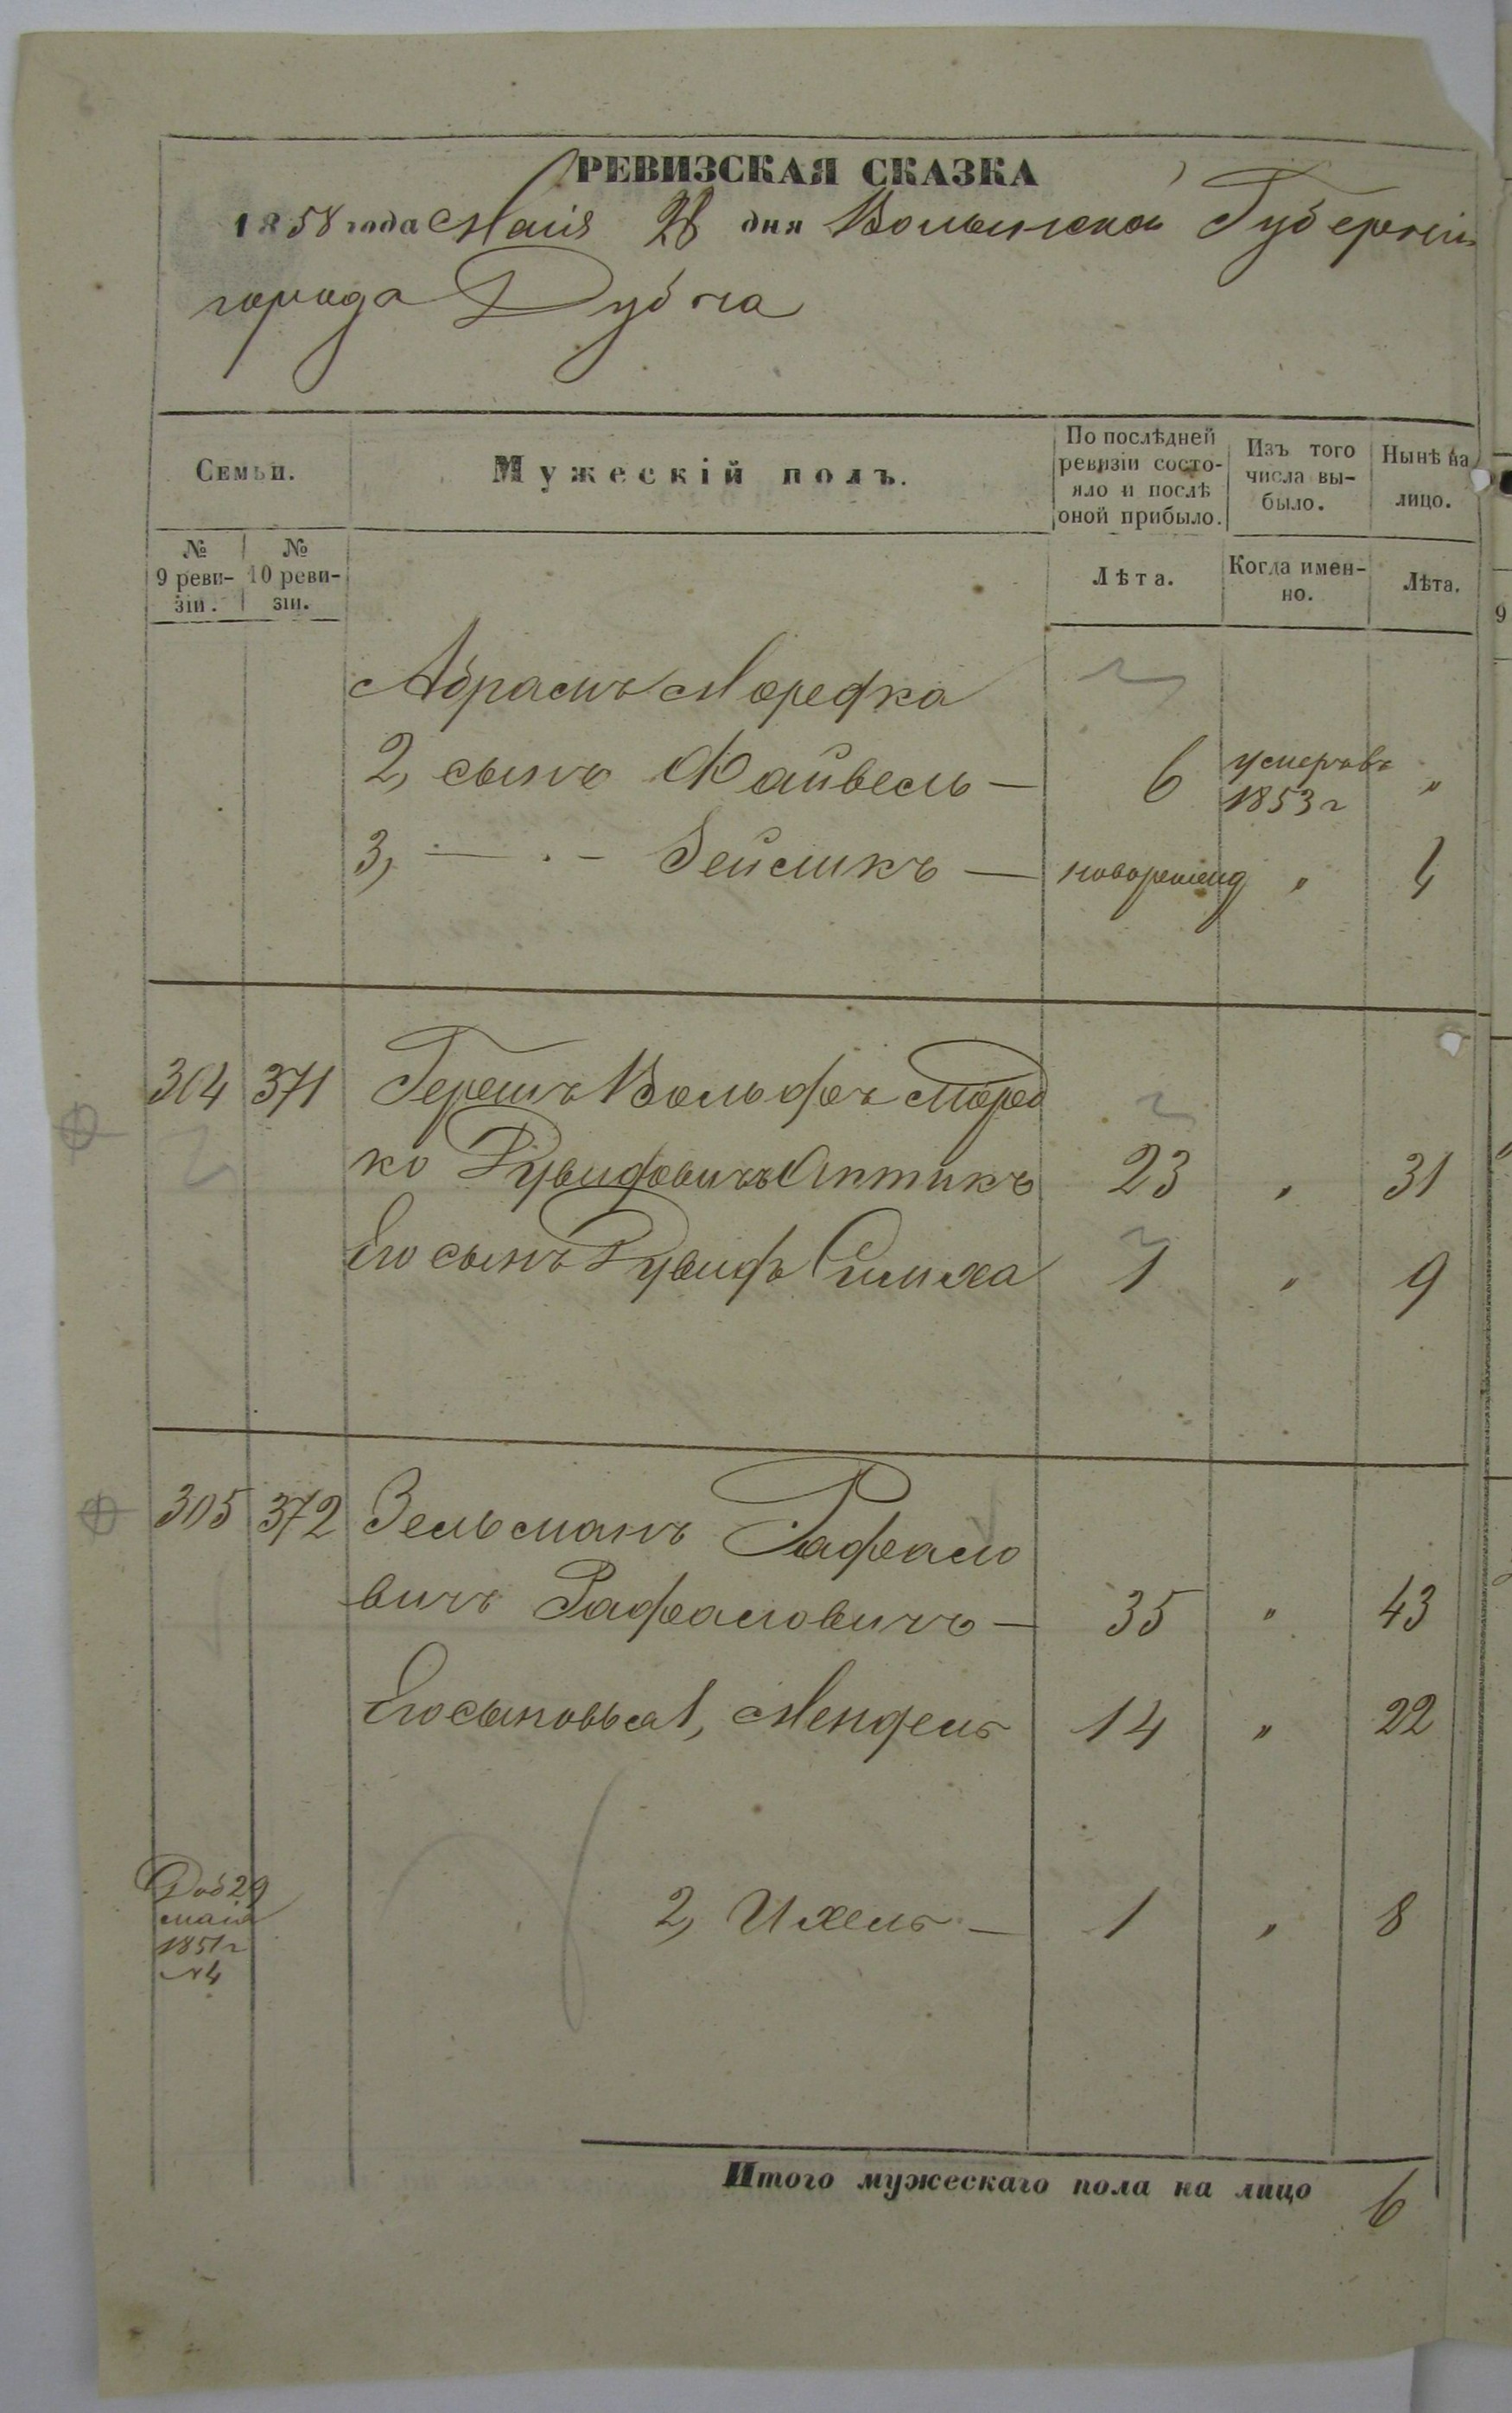 РЕВИЗСКАЯ СКАЗКА
1858 года Маія 28 дня Волынской Губерніи
города Дубна
Семьи.
Мужескій полъ.
По послѣдней ревизіи состо-
яло и послѣ оной прибыло.
Изъ того числа вы-
было.
Нынѣ на лицо.
№ 9 реви-
зіи.
№ 10 реви-
зіи.
Лѣта.
Когда имен-
но.
Лѣта.
Абрамъ Моредка
2, сынъ Файвель — 6 умеръ въ 1853 г "
3, — · – Зейсмикъ — новорожд " 4
304 371 Герешъ Вольфъ Моред
ко Рувидовичъ Аптикъ 23 " 31
Его сынъ Рувидъ Симха 1 " 9
305 372 Зельманъ Рафаило
вичъ Рафаиловичъ — 35 " 43
Его сыновья 1, Мендель 14 " 22
Доб 29
маія
1851 г
№ 4
2, Ихель — 1 " 8
Итого мужескаго пола на лицо 6